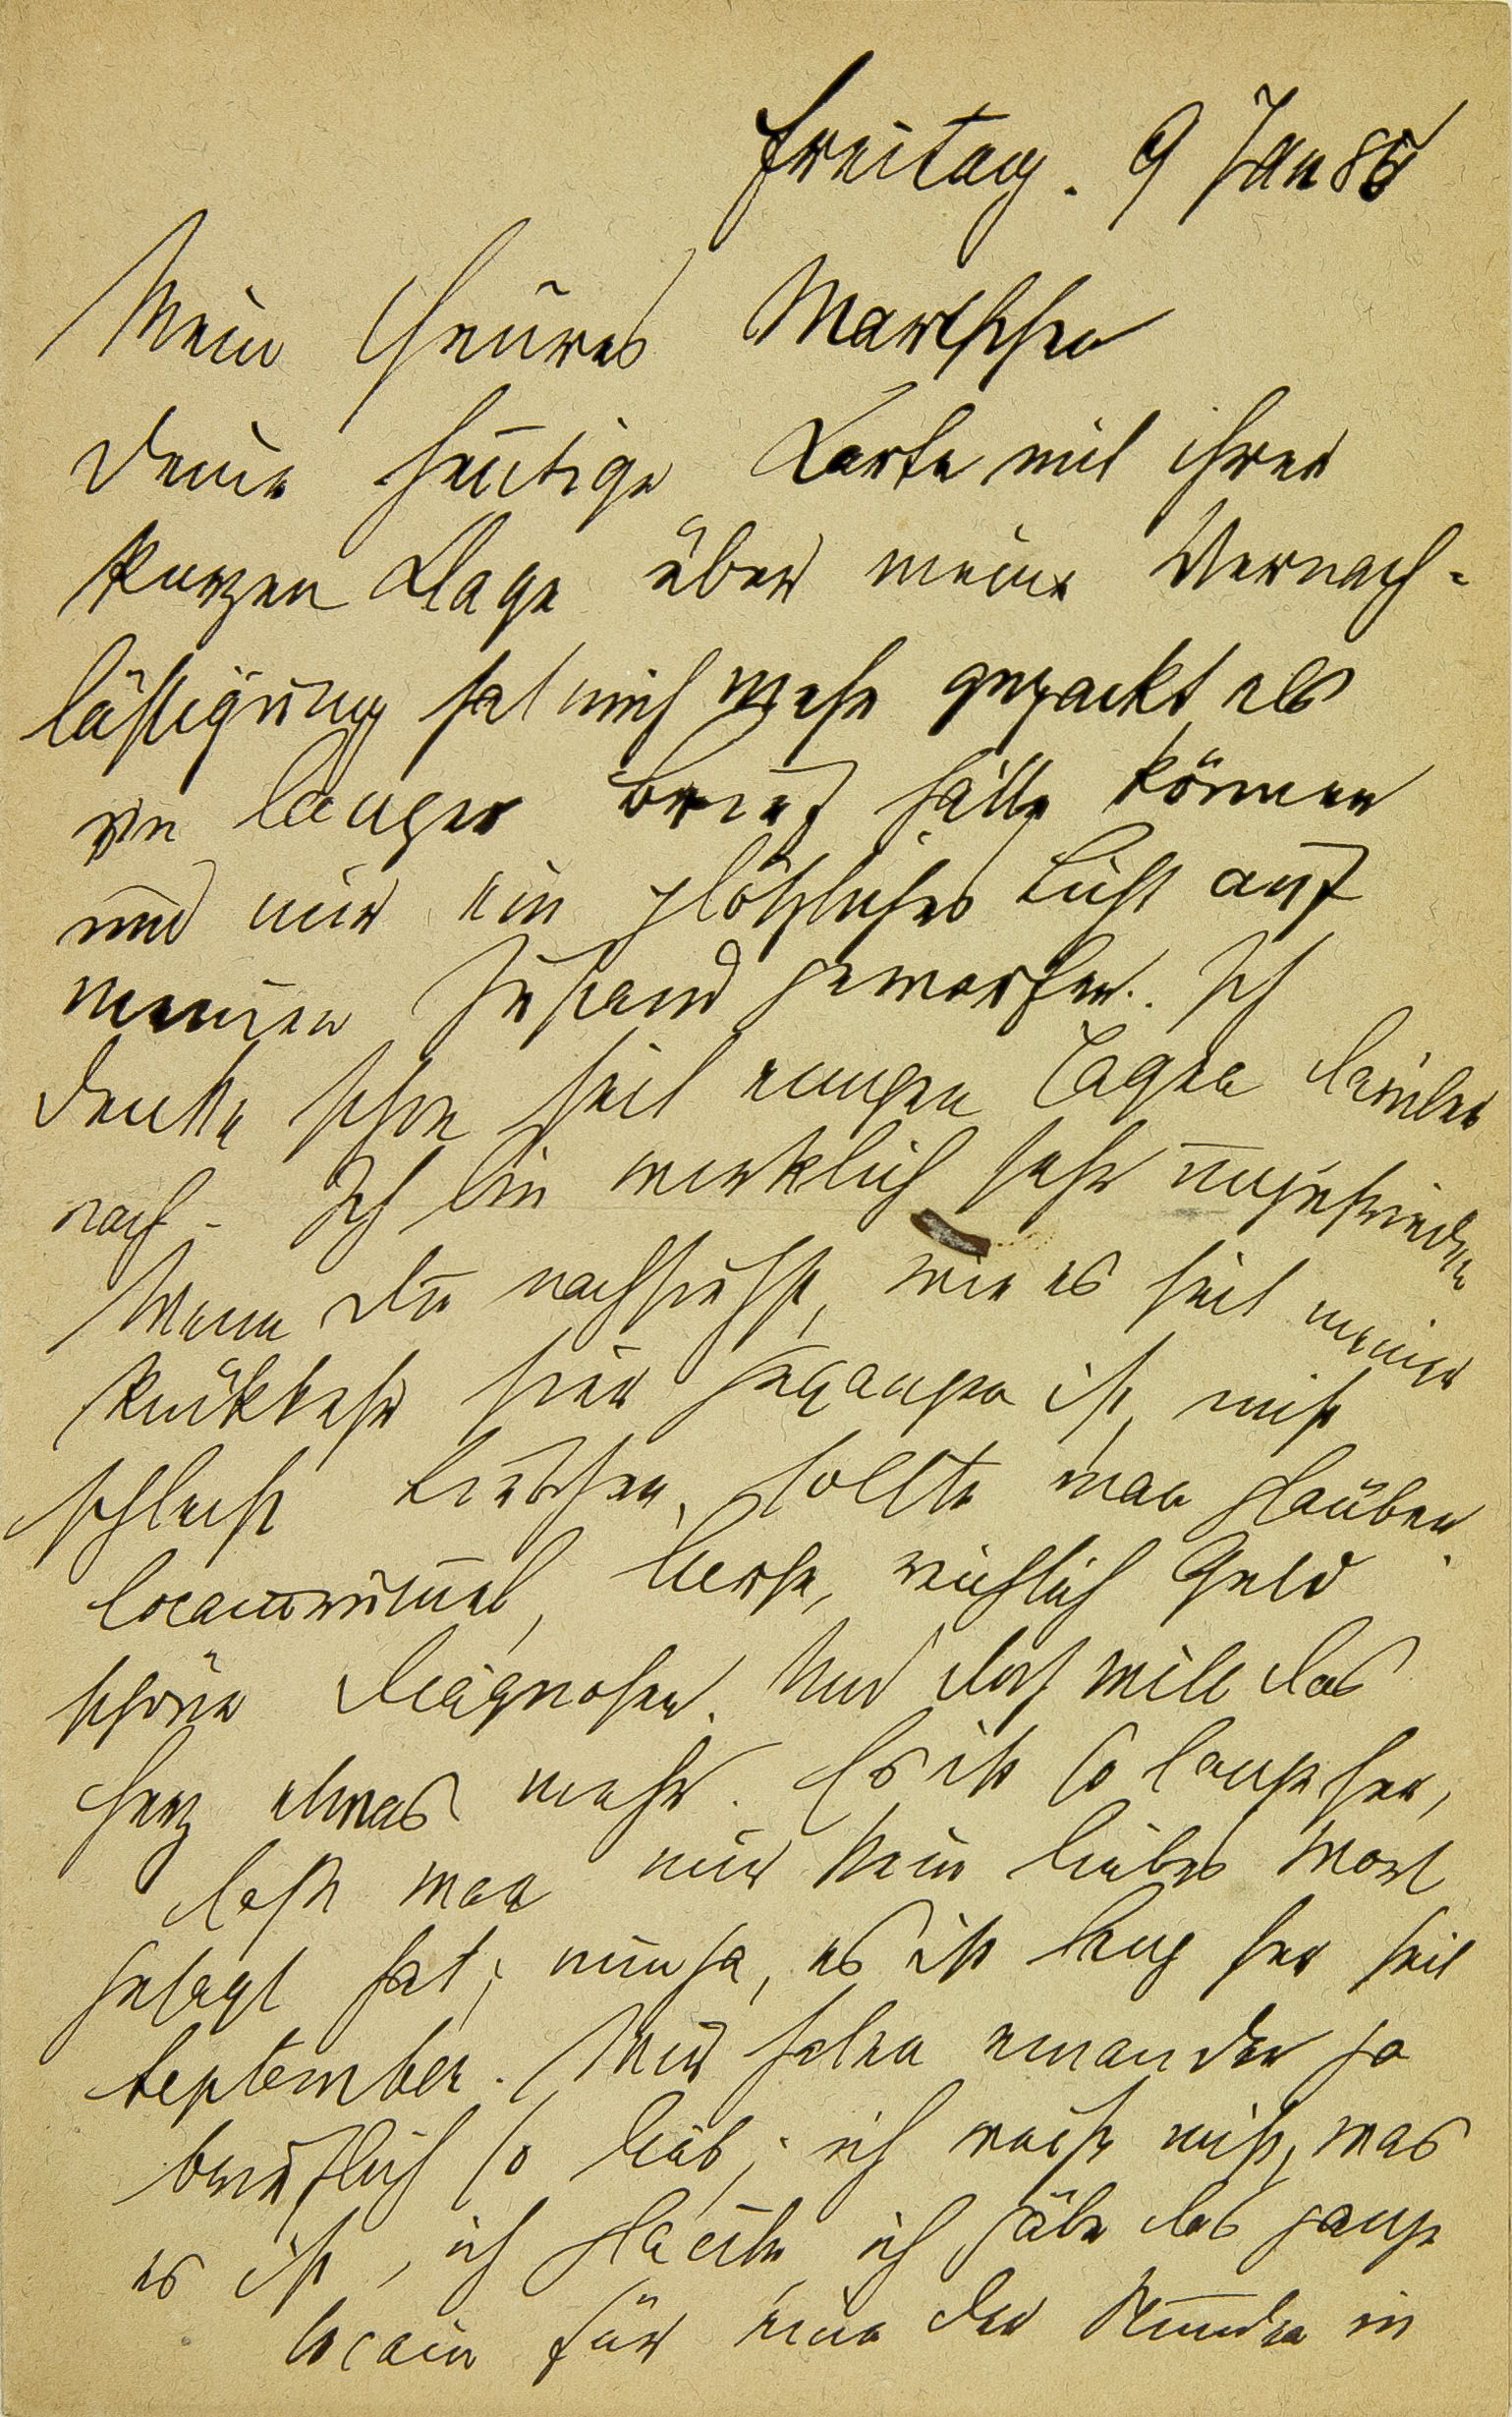 Freitag. 9 Jan 85
Mein theures Marthchen
Deine heutige Karte mit ihrer
kurzen Klage über meine Vernach-
lässigung hat mich mehr gepackt als
ein langer Brief hätte können
und mir ein plötzliches Licht auf
meinen Zustand geworfen. Ich
denke schon seit einigen Tagen darüber
nach - Ich bin wirklich sehr unzufrieden
Wenn Du nachsiehst, wie es seit meiner
Rückkehr hier gegangen ist, nicht
schlecht bisher, sollte man glauben.
Cocain, reichlich Geld
schöne Diagnosen. Und doch will das
Herz etwas mehr. Es ist so lange her,
daß man mir kein liebes Wort
gesagt hat; nun ja, es ist lang her seit
September. Wir haben einander ja
brieflich so lieb; ich weiß nicht, was
es ist, ich glaube ich gäbe das ganze
Cocain für eine der Stunden in